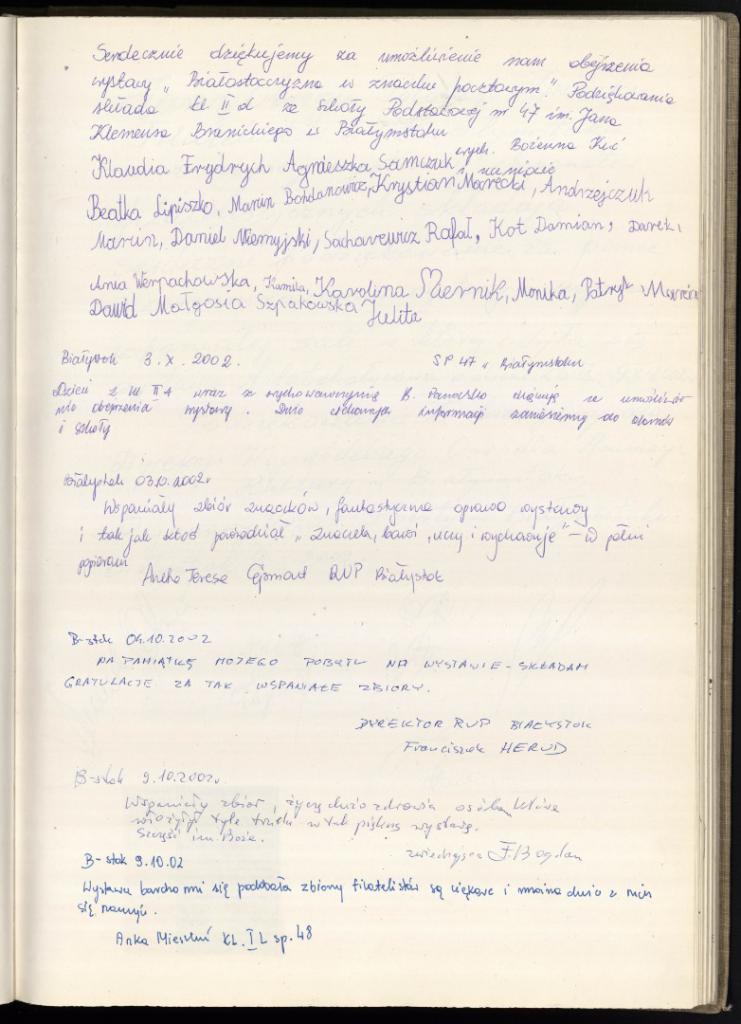 Serdecznie dziękujemy za umożliwienie nam obejrzenia
wystawy „Białostocczyzna w znaczku pocztowym." Podziękowania
składa kl II d ze Szkoły Podstawowej nr 47 im. Jana
Klemensa Branickiego w Białymstoku
wych. Bożenna Kuć
i uczniowie
Klaudia Frydrych Agnieszka Samczuk
Beatka Lipiszko, Marcin Bohdanowicz, Krystian Marecki, Andrzejczuk
Marcin, Daniel Niemyjski, Sacharewicz Rafał, Kot Damian, Darek,
Ania Werpachowska, Kamila, Karolina Miernik, Monika, Patryk Marcin
Dawid Małgosia Szpakowska Julita
Białystok 3.X.2002. SP 47 w Białymstoku
Dzieci z kl II A wraz z wychowawczynią B. dziękują za umożliw
nie obejrzenia wystawy. Dużo ciekawych informacji zaniesiemy do domów
i szkoły
Białystok 03.10.2002r
Wspaniały zbiór znaczków, fantastyczna oprawa wystawy
i tak jak ktoś powiedział „znaczek, bawi, uczy i wychowuje" – w pełni
popieram
Teresa RUP Białystok
B-stok 04.10.2002
NA PAMIĄTKĘ MOJEGO POBYTU NA WYSTAWIE - SKŁADAM
GRATULACJE ZA TAK WSPANIAŁE ZBIORY.
DYREKTOR RUP BIAŁYSTOK
Franciszek HERUD
B-stok 9.10.2002r.
Wspaniały zbiór, życzę dużo zdrowia osobom które
włożyły tyle trudu w tak piękną wystawę.
Szczęść im Boże.
zwiedzająca F. Bogdan
B-stok 9.10.02
Wystawa bardzo mi się podobała zbiory filatelistów są ciekawe i można dużo z nich
się nauczyć.
Anka KL. I L sp. 48